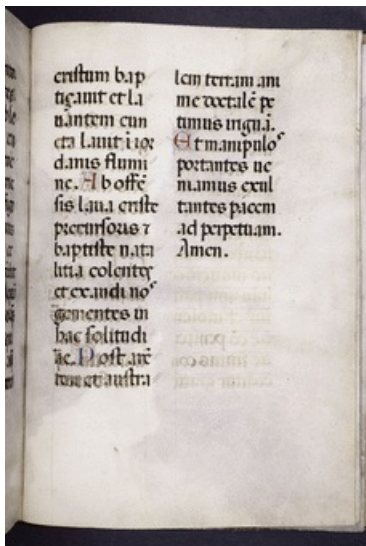 cristum bap
tiȝauit et la
uantem cun
cta lauit ī ior
danis flumi
ne. Ab offē
sis laua criste
precursoris ⁊
baptiste nata
litia colentes
et exaudi nos
gementes in
hac solitudi
ne. Post
tem et austra
lem terram ani
me doctalē pe
timus irriguā.
Et manipulos
portantes ue
niamus exul
tantes pacem
ad perpetuam.
Amen.